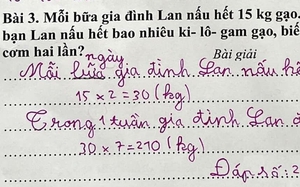 Bài 3. Mỗi bữa gia đình Lan nấu hết 15 kg gạo,
bạn Lan nấu hết bao nhiêu ki- lô- gam gạo, biế
cơm hai lần?
Bài giải
ngày
Mỗi bữa gia đình Lan nấu hế
15 x 2 = 30 (kg)
Trong 1 tuần gia đình Lan
30 x 7 = 210 (kg)
Đáp số: 2